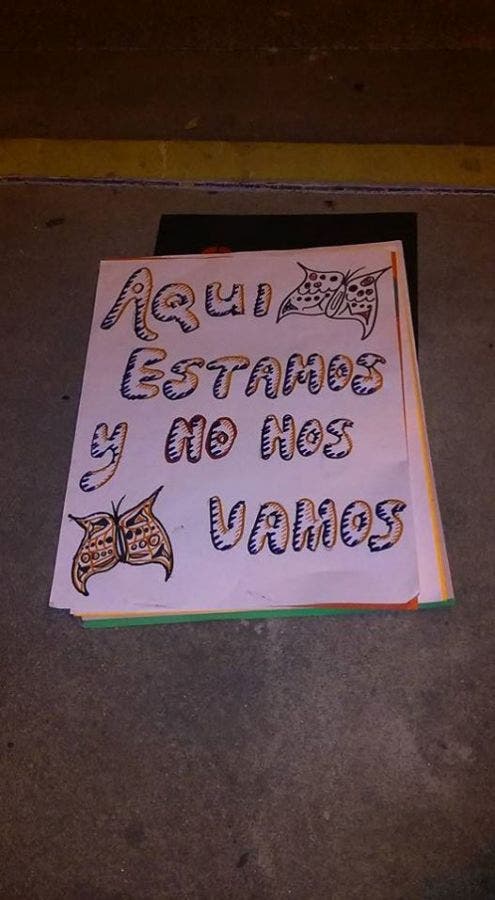 AQUI
ESTAMOS
Y NO NOS
VAMOS